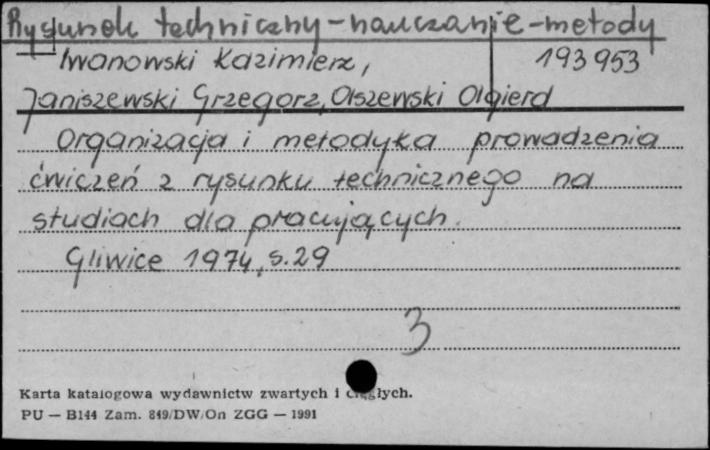 Rysunek techniczny - nauczanie - metody
Iwanowski Kazimierz, 193 953
Janiszewski Grzegorz, Olszewski Olgierd
Organizacja i metodyka prowadzenia
ćwiczeń z rysunku technicznego na
studiach dla pracujących.
Gliwice 1974, s. 29
3
Karta katalogowa wydawnictw zwartych i ciągłych.
PU — B144 Zam. 849/DW/On ZGG — 1991